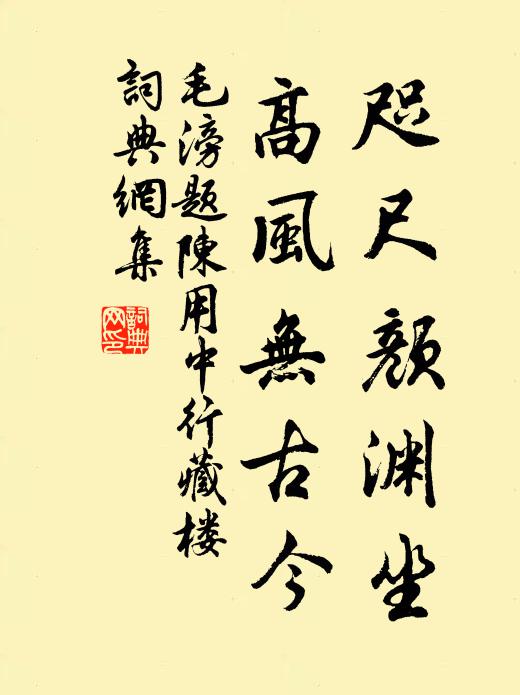 咫尺顏渊坐
高風無古今
毛滂题陳用中行藏楼
詞典網集
詞典网印